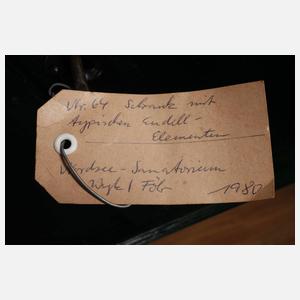 Nr. 64 Schrank mit
typischen Endell-
Elementen
Nordsee-Sanatorium
Wyk / Föhr
1980